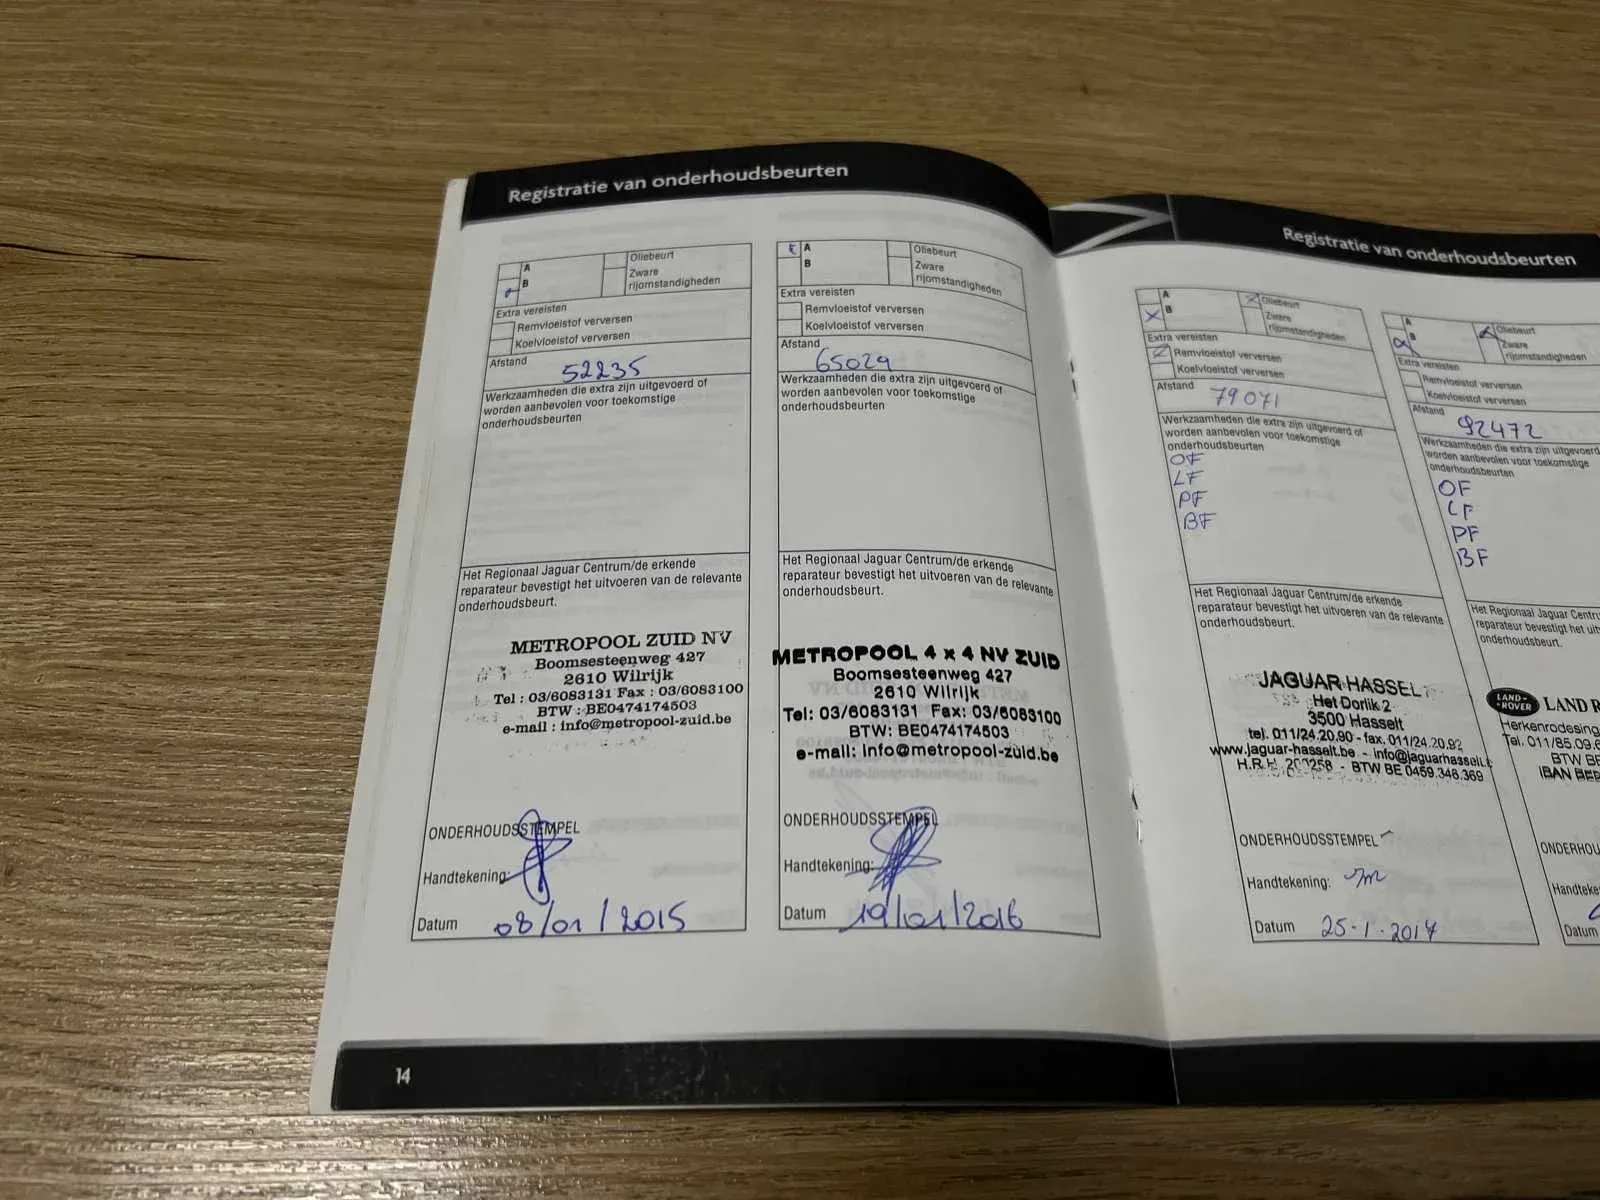 Registratie van onderhoudsbeurten
A
B
Oliebeurt
Zware
rijomstandigheden
Extra vereisten
Remvloeistof verversen
Koelvloeistof verversen
Afstand
52235
Werkzaamheden die extra zijn uitgevoerd of
worden aanbevolen voor toekomstige
onderhoudsbeurten
Het Regionaal Jaguar Centrum/de erkende
reparateur bevestigt het uitvoeren van de relevante
onderhoudsbeurt.
METROPOOL ZUID NV
Boomsesteenweg 427
2610 Wilrijk
Tel : 03/6083131 Fax : 03/6083100
BTW : BE0474174503
e-mail : info@metropool-zuid.be
ONDERHOUDSSTEMPEL
Handtekening:
Datum 08/01/2015
A
B
Oliebeurt
Zware
rijomstandigheden
Extra vereisten
Remvloeistof verversen
Koelvloeistof verversen
Afstand
65029
Werkzaamheden die extra zijn uitgevoerd of
worden aanbevolen voor toekomstige
onderhoudsbeurten
Het Regionaal Jaguar Centrum/de erkende
reparateur bevestigt het uitvoeren van de relevante
onderhoudsbeurt.
METROPOOL 4 x 4 NV ZUID
Boomsesteenweg 427
2610 Wilrijk
Tel: 03/6083131 Fax: 03/6083100
BTW: BE0474174503
e-mail: info@metropool-zuid.be
ONDERHOUDSSTEMPEL
Handtekening:
Datum 19/01/2016
14
Registratie van onderhoudsbeurten
A
B
Oliebeurt
Zware
rijomstandigheden
Extra vereisten
Remvloeistof verversen
Koelvloeistof verversen
Afstand
79071
Werkzaamheden die extra zijn uitgevoerd of
worden aanbevolen voor toekomstige
onderhoudsbeurten
OF
LF
PF
BF
Het Regionaal Jaguar Centrum/de erkende
reparateur bevestigt het uitvoeren van de relevante
onderhoudsbeurt.
JAGUAR HASSELT
Het Dorlik 2
3500 Hasselt
tel. 011/24.20.90 - fax. 011/24.20.92
www.jaguar-hasselt.be - info@jaguarhasselt.
BTW BE 0459.346.369
ONDERHOUDSSTEMPEL
Handtekening:
Datum 25-1-2017
A
B
Oliebeurt
Zware
rijomstandigheden
Extra vereisten
Remvloeistof verversen
Koelvloeistof verversen
Afstand
92472
Werkzaamheden die extra zijn uitgevoerd
worden aanbevolen voor toekomstige
onderhoudsbeurten
OF
LF
PF
BF
Het Regionaal Jaguar Centr
reparateur bevestigt het uit
onderhoudsbeurt.
LAND-ROVER LAND R
Herkenrodesing
Tel. 011/85.09.6
BTW BE
IBAN BE
ONDERHOU
Handteke
Datum